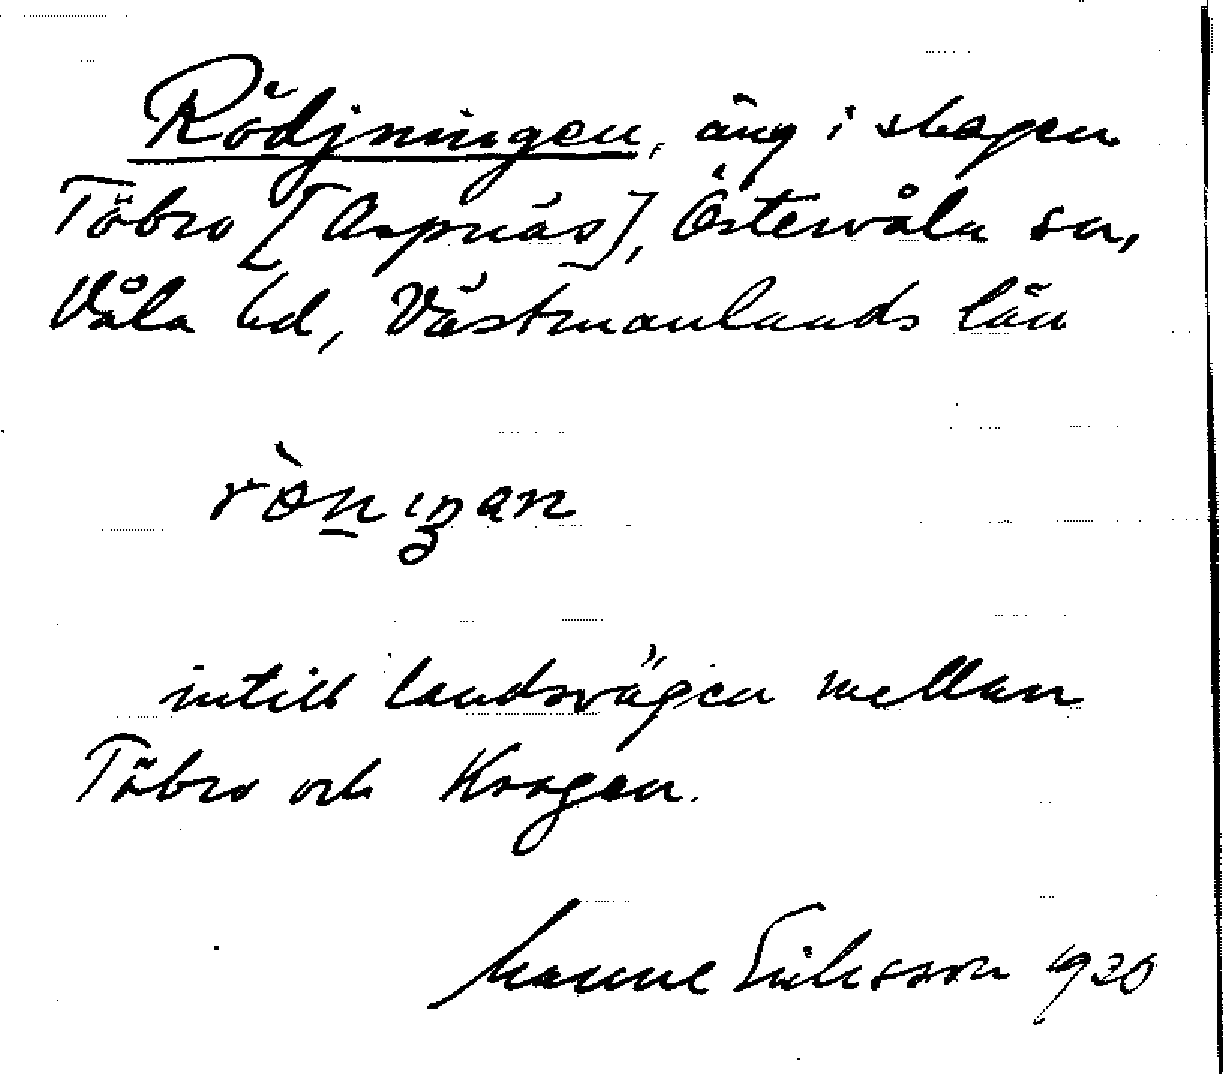 Rödjningen, äng i skogen
Töbro [Aspnäs], Östervåla sn,
Våla hd, Västmanlands län
rö̀niŋan
intill landsvägen mellan
Töbro och Krogen.
Manne Eriksson 1930